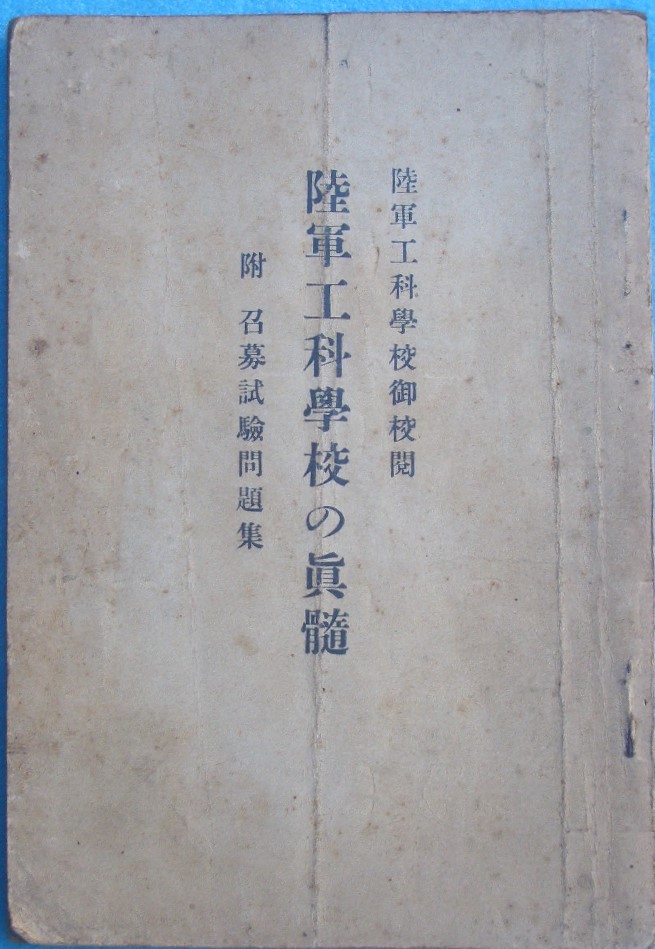 陸軍工科學校御校閲
陸軍工科學校の眞髓
附 召募試驗問題集